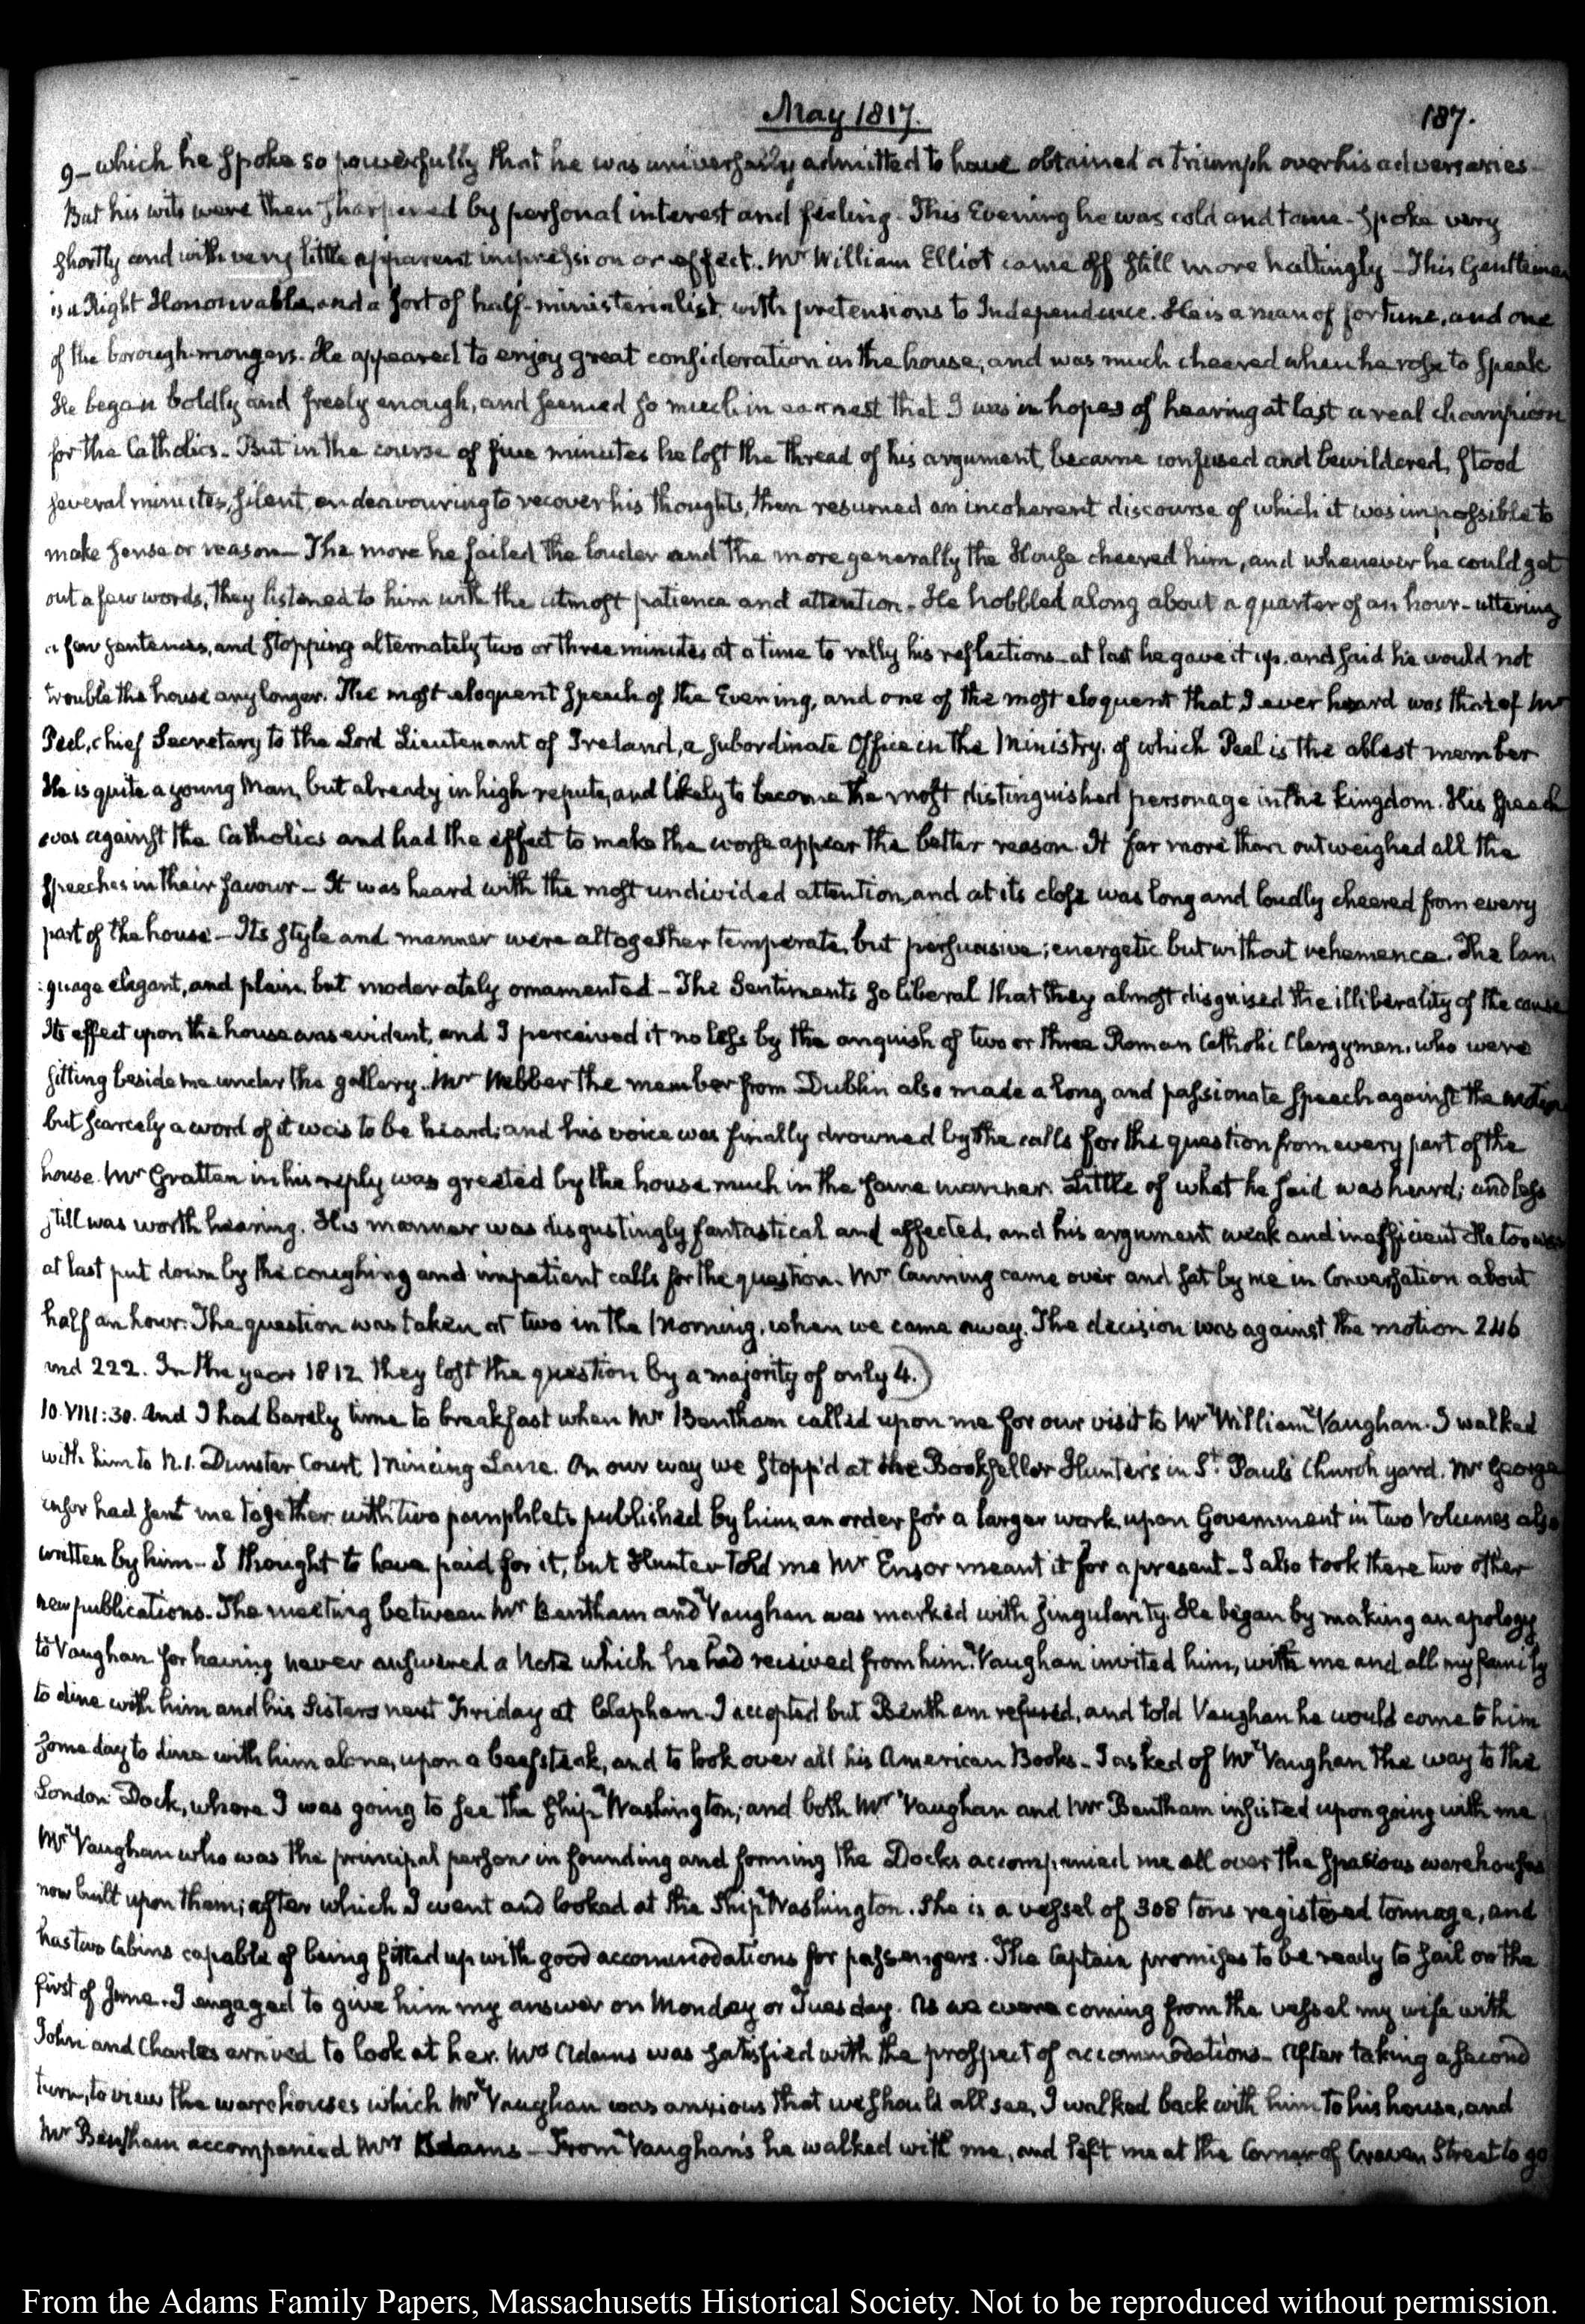 May 1817.
187.
9 – which he spoke so powerfully that he was universally admitted to have obtained a triumph over his adversaries –
But his wits were then sharpened by personal interest and feeling – This Evening he was cold and tame – spoke very
shortly and with very little apparent impression or effect. Mr William Elliot came off still more haltingly – This Gentleman
is a Right Honourable, and a sort of half-ministerialist, with pretensions to Independence. He is a man of fortune, and one
of the borough-mongers. He appeared to enjoy great consideration in the house, and was much cheered when he rose to speak
He began boldly and freely enough, and seemed so much in earnest that I was in hopes of hearing at last a real champion
for the Catholics – But in the course of five minutes he lost the thread of his argument, became confused and bewildered, stood
several minutes, silent, endeavouring to recover his thoughts, then resumed an incoherent discourse of which it was impossible to
make sense or reason – The more he failed the louder and the more generally the House cheered him, and whenever he could get
out a few words, they listened to him with the utmost patience and attention – He hobbled along about a quarter of an hour – uttering
a few sentences, and stopping alternately two or three minutes at a time to rally his reflections – at last he gave it up, and said he would not
trouble the house any longer. The most eloquent speech of the Evening, and one of the most eloquent that I ever heard was that of Mr
Peel, chief Secretary to the Lord Lieutenant of Ireland, a subordinate Office in the Ministry, of which Peel is the ablest member
He is quite a young Man, but already in high repute, and likely to become the most distinguished personage in the kingdom. His speech
was against the Catholics and had the effect to make the worse appear the better reason. It far more than outweighed all the
speeches in their favour – It was heard with the most undivided attention, and at its close was long and loudly cheered from every
part of the house – Its style and manner were altogether temperate, but persuasive; energetic but without vehemence. The lan
:guage elegant, and plain, but moderately ornamented – The Sentiments so liberal that they almost disguised the illiberality of the cause
Its effect upon the house was evident, and I perceived it no less by the anguish of two or three Roman Catholic Clergymen, who were
sitting beside me under the gallery. Mr Webber the member from Dublin also made a long and passionate speech against the motion
but scarcely a word of it was to be heard; and his voice was finally drowned by the calls for the question from every part of the
house. Mr Grattan in his reply was greeted by the house much in the same manner. Little of what he said was heard; and less
still was worth hearing. His manner was disgustingly fantastical and affected, and his argument weak and inefficient He too was
at last put down by the coughing and impatient calls for the question. Mr Canning came over and sat by me in Conversation about
half an hour. The question was taken at two in the Morning, when we came away. The decision was against the motion 246
and 222. In the year 1812 they lost the question by a majority of only 4.)
10. VIII:30. And I had barely time to breakfast when Mr Bentham called upon me for our visit to Mr William Vaughan. I walked
with him to N. 1. Dunster Court Mincing Lane. On our way we stopp'd at the Bookseller Hunter's in St. Pauls Church yard. Mr George
Ensor had sent me together with two pamphlets published by him, an order for a larger work, upon Government in two Volumes also
written by him – I thought to have paid for it, but Hunter told me Mr Ensor meant it for a present – I also took there two other
new publications. The meeting between Mr Bentham and Vaughan was marked with singularity. He began by making an apology
to Vaughan for having never answered a Note which he had received from him. Vaughan invited him, with me and all my family
to dine with him and his Sisters next Friday at Clapham. I accepted but Bentham refused, and told Vaughan he would come to him
some day to dine with him alone, upon a beefsteak, and to look over all his American Books – I asked of Mr Vaughan the way to the
London Dock, where I was going to see the ship Washington; and both Mr Vaughan and Mr Bentham insisted upon going with me
Mr Vaughan who was the principal person in founding and forming the Docks accompanied me all over the spacious warehouses
now built upon them; after which I went and looked at the ship Washington. She is a vessel of 308 tons registered tonnage, and
has two Cabins capable of being fitted up with good accommodations for passengers. The Captain promises to be ready to sail on the
first of June. I engaged to give him my answer on Monday or Tuesday. As we were coming from the vessel my wife with
John and Charles arrived to look at her. Mrs Adams was satisfied with the prospect of accommodations – After taking a second
turn, to view the warehouses which Mr Vaughan was anxious that we should all see, I walked back with him to his house, and
Mr Bentham accompanied Mrs Adams – From Vaughan's he walked with me, and left me at the Corner of Craven Street to go
From the Adams Family Papers, Massachusetts Historical Society. Not to be reproduced without permission.